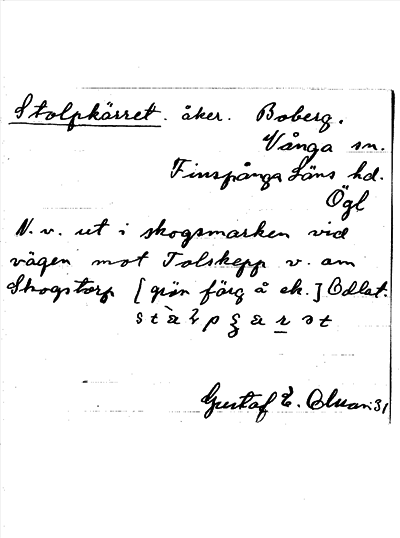 Stolpkärret. åker. Boberg.
Vånga sn.
Finspånga Läns hd.
Ögl
N. v. ut i skogsmarken vid
vägen mot Tolskepp v. om
Skogstorp [grön färg å ek.] Odlat.
Gustaf E. 31